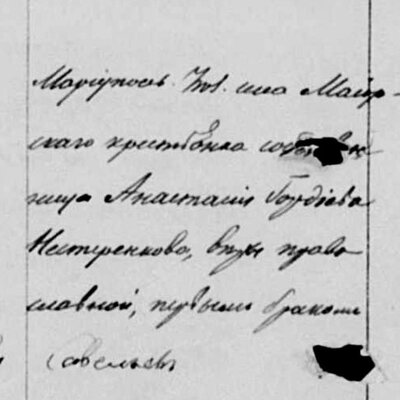 Маріупол. села Майор-
скаго крестьянка собствен
ница Анастасія Гордіева
Нестеренкова, вѣры право
славной, первымъ бракомъ